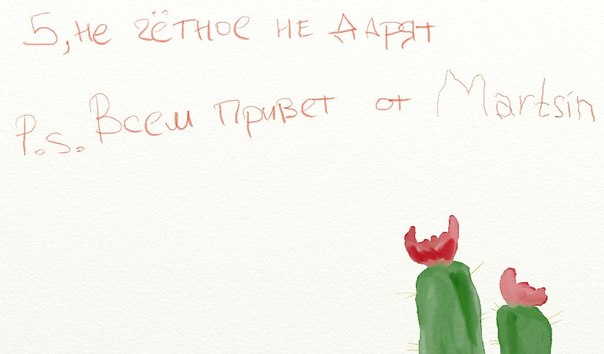 5, не чётное не дарят
P.s. Всем привет от Martsin